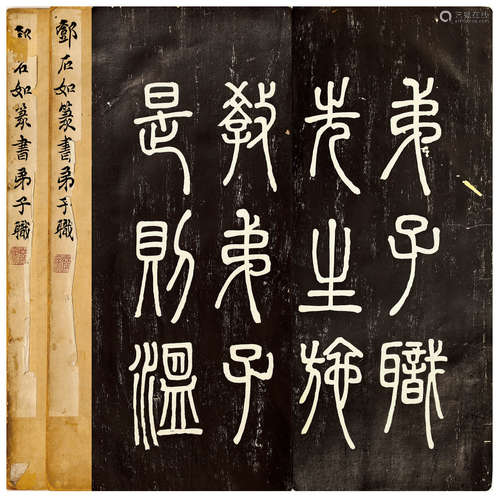 弟子職
先生施
教弟子
是則溫
鄧石如篆書弟子職
鄧石如篆書弟子職